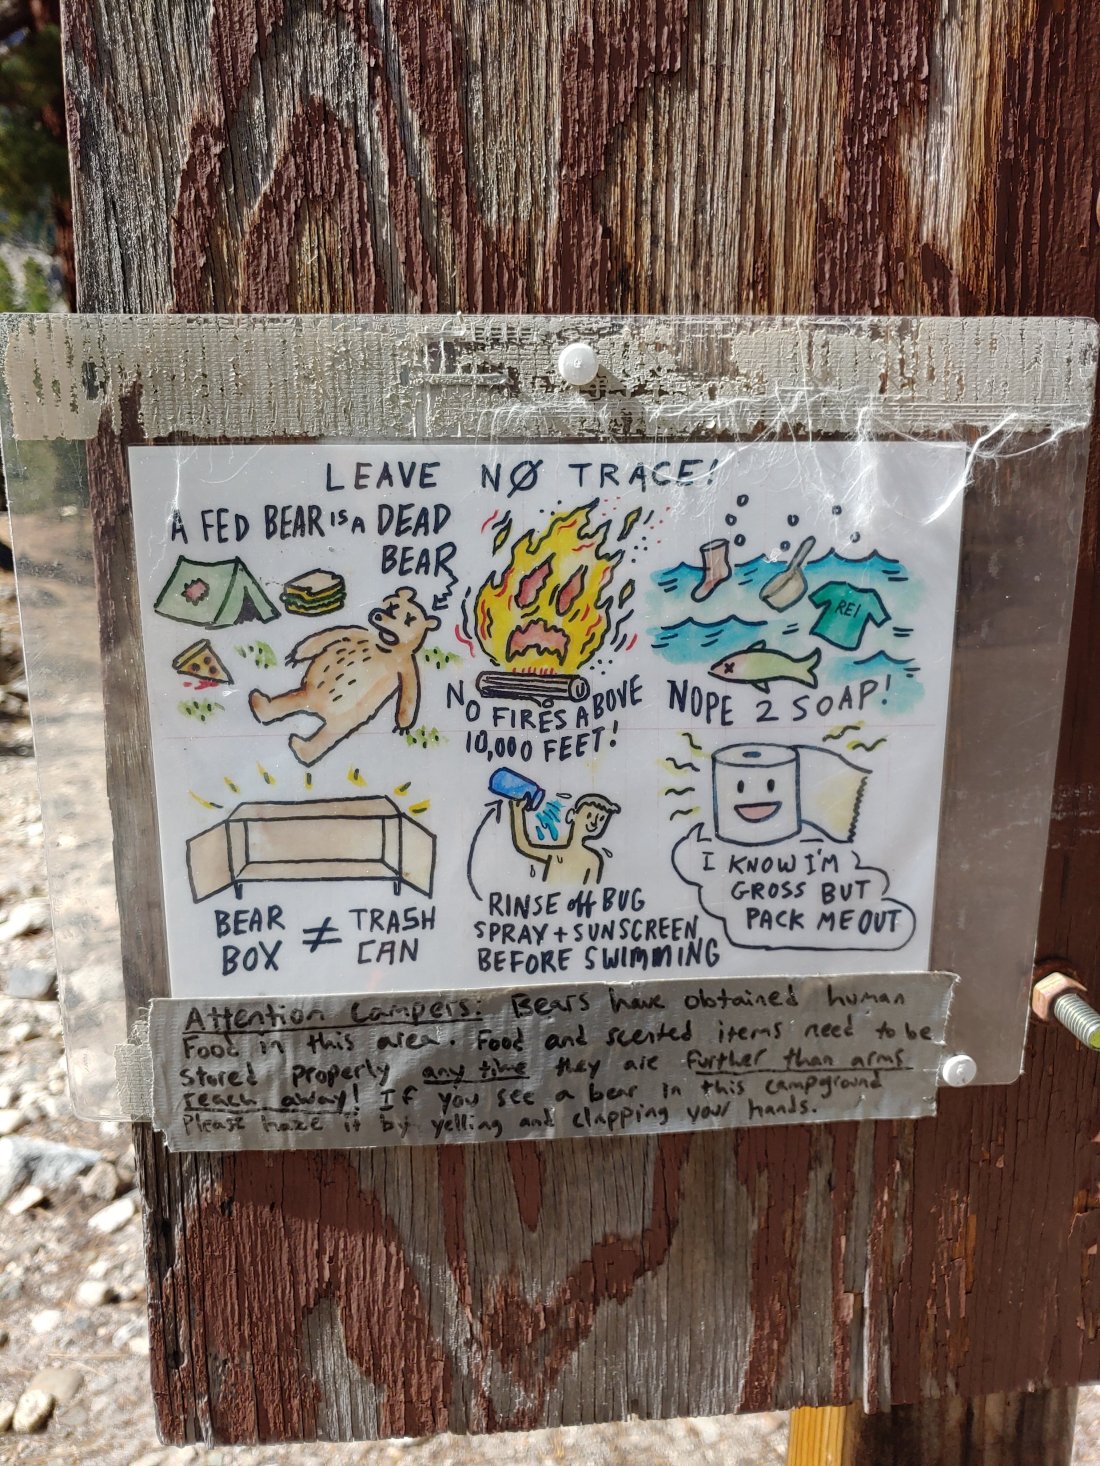 LEAVE NØ TRACE!
A FED BEAR IS A DEAD
BEAR
REI
NO FIRES ABOVE
10,000 FEET!
NOPE 2 SOAP!
BEAR
BOX ≠ TRASH
CAN
RINSE off BUG
SPRAY + SUNSCREEN
BEFORE SWIMMING
I KNOW I'M
GROSS BUT
PACK ME OUT
Attention Campers: Bears have obtained human
Food in this area. Food and scented items need to be
stored properly any time they are further than arms
reach away! If you see a bear in this campground
Please haze it by yelling and clapping your hands.